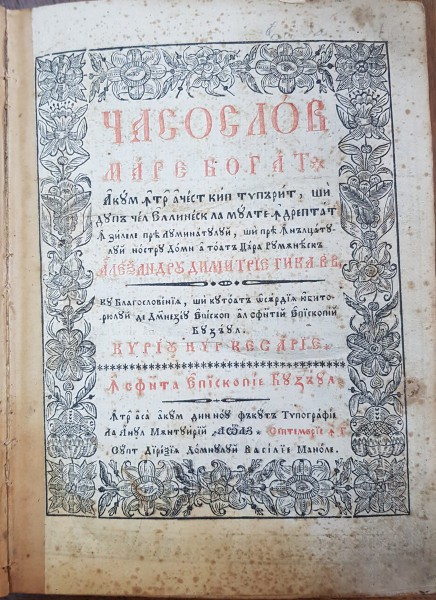 ЧАСОСЛОВ
МАРЕ БОГАТ
Акум ꙟтр ачест кип типърит, ши
дупъ чел Еллинеск ла мулте ꙟдрептат
ꙟ зилеле пре Луминатулуй, ши пре Ꙟнълцату-
луй ностру Домн а тоатъ Цара Румѫнѣскъ
АЛЕѮАНДРУ ДИМИТРІЕ ГИКА В В.
Ку Благословеніѧ, ши ку тоатъ ѡсѫрдія юбито-
рюлуй де Дмнезеу Епископ ал сфинтей Епископій
Бузъул.
КУРІѠ КУР КЕСАРІЕ.
Ꙟ СФИТА ЕПИСКОПІЕ БУЗЪУЛ
Ꙟтр аса акум дин ноу фъкутъ Типографіе
Ла Анул Мѫнтуирій Септемвріе
Супт Дирекція Домнулуй Василіе Маноле.